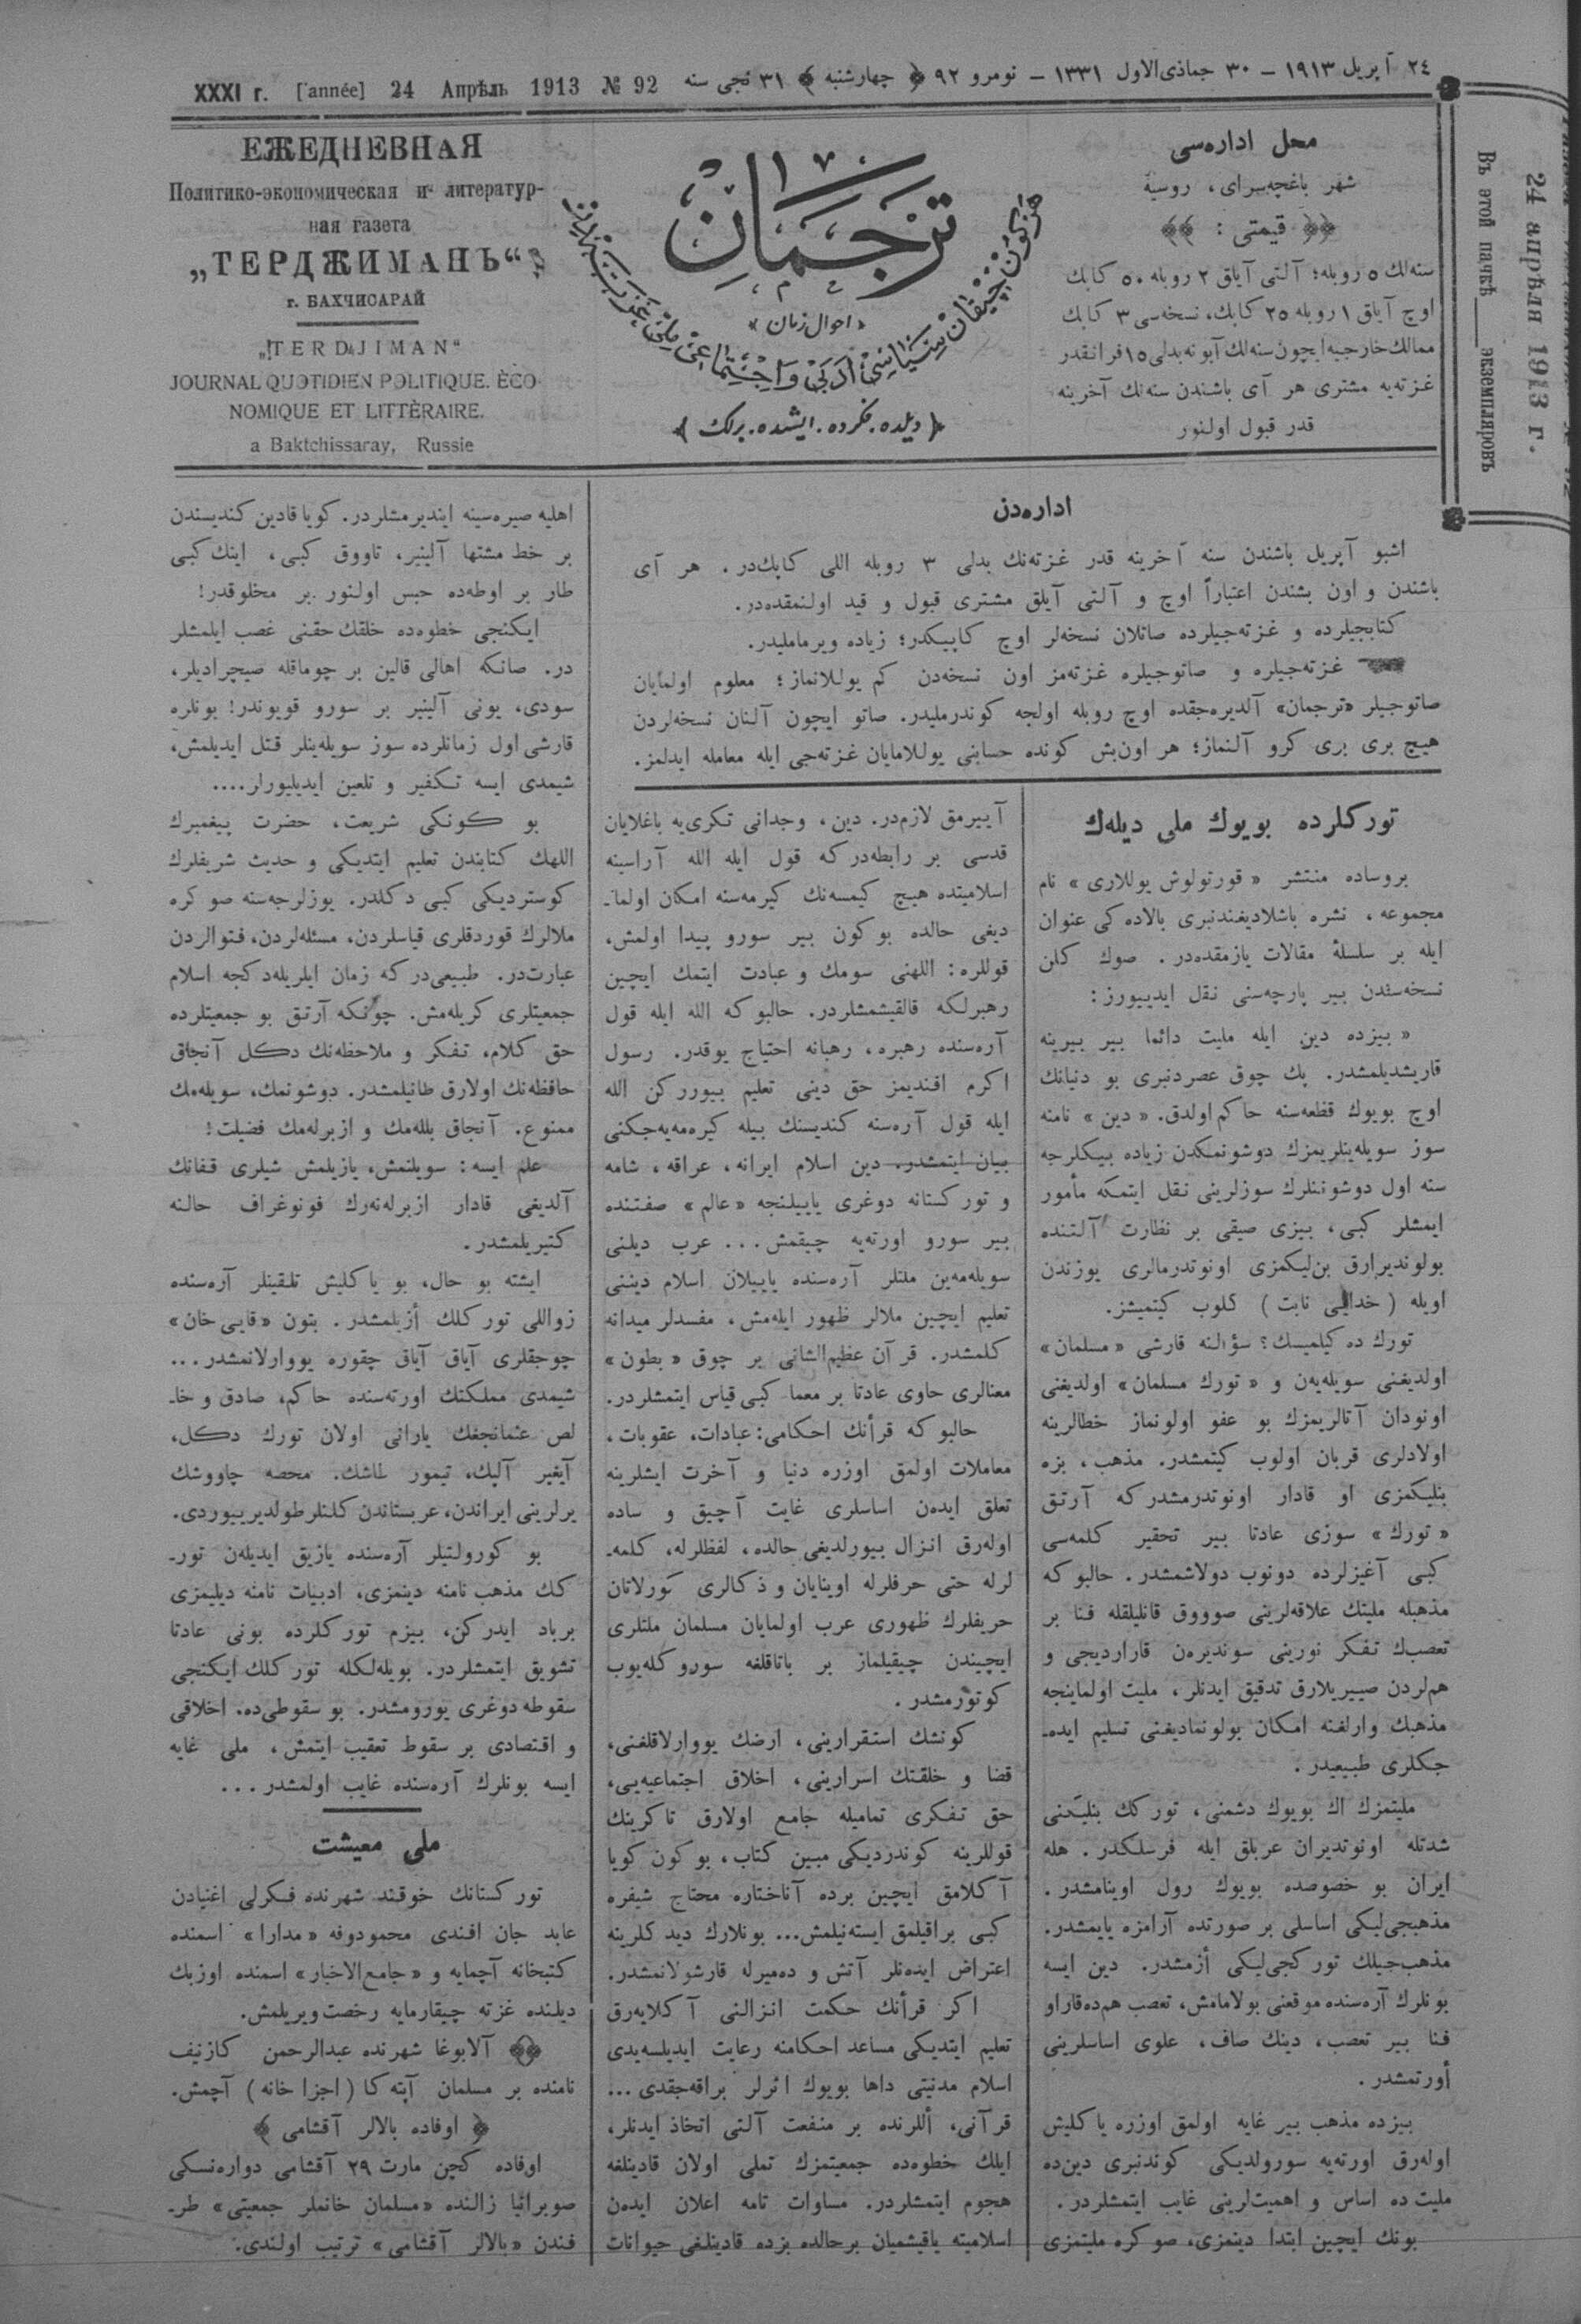 ٢٤ آپریل ١٩١٣ – ٣٠ جماذی‌الاول ١٣٣١ – نومرو ٩٢ ﴿ چهارشنبه ﴾ ٣١ نجی سنه
XXXI г. [année] 24 Апрѣль 1913 № 92
ЕЖЕДНЕВНАЯ
Политико-экономическая и литератур-
ная газета
„ТЕРДЖИМАНЪ“
г. БАХЧИСАРАЙ
„TERDJIMAN“
JOURNAL QUOTIDIEN POLITIQUE. ÈCO-
NOMIQUE ET LITTÈRAIRE.
a Baktchissaray, Russie
ترجمان
«احوال زمان»
هر كون چیقان سیاسی ادبی و اجتماعی ملی غزته‌در
﴿ دیلده. فكرده. ایشده. برلك ﴾
محل اداره‌سی
شهر باغچه‌سرای، روسیه
قیمتی :
سنه‌لك ٥ روبله؛ آلتی آیلق ٢ روبله ٥٠ كاپك
اوچ آیلق ١ روبله ٢٥ كاپك، نسخه‌سی ٣ كاپك
ممالك خارجیه ایچون سنه‌لك آبونه بدلی ١٥ فرانقدر
غزته‌یه مشتری هر آی باشندن سنه‌نك آخرینه
قدر قبول اولنور
24 апрѣля 1913 г.
Въ этой пачкѣ экземпляровъ
اداره‌دن
اشبو آپریل باشندن سنه آخرینه قدر غزته‌نك بدلی ٣ روبله اللی كاپك‌در. هر آی
باشندن و اون بشندن اعتباراً اوچ و آلتی آیلق مشتری قبول و قید اولنمقده‌در.
كتابجیلرده و غزته‌جیلرده صاتلان نسخه‌لر اوچ كاپیكدر؛ زیاده ویرماملیدر.
غزته‌جیلره و صاتوجیلره غزته‌مز اون نسخه‌دن كم یوللانماز؛ معلوم اولمایان
صاتوجیلر «ترجمان» آلدیره‌جقده اوچ روبله اولجه كوندرملیدر. صاتو ایچون آلنان نسخه‌لردن
هیچ بری بری كرو آلنماز؛ هر اون‌بش كونده حسابنی یوللامایان غزته‌جی ایله معامله ایدلمز.
توركلرده بویوك ملی دیله‌ك
بروساده منتشر «قورتولوش یوللاری» نام
مجموعه، نشره باشلادیغندنبری بالاده كی عنوان
ایله بر سلسلهٔ مقالات یازمقده‌در. صوك كلن
نسخه‌سندن بیر پارچه‌سنی نقل ایدییورز:
«بیزده دین ایله ملیت دائما بیر بیرینه
قاریشدیلمشدر. پك چوق عصردنبری بو دنیانك
اوچ بویوك قطعه‌سنه حاكم اولدق. «دین» نامنه
سوز سویله‌ینلریمزك دوشونمكدن زیاده بیكلرجه
سنه اول دوشوننلرك سوزلرینی نقل ایتمكه مأمور
ایمشلر كبی، بیزی صیقی بر نظارت آلتنده
بولوندیرارق بن‌لیكمزی اونوتدرمالری یوزندن
اویله (خدایی نابت) كلوب كیتمیشز.
تورك ده كیلمیسك؟ سؤالنه قارشی «مسلمان»
اولدیغنی سویله‌یه‌ن و «تورك مسلمان» اولدیغنی
اونودان آتالریمزك بو عفو اولونماز خطالرینه
اولادلری قربان اولوب كیتمشدر. مذهب، بزه
بنلیكمزی او قادار اونوتدرمشدر كه آرتق
«تورك» سوزی عادتا بیر تحقیر كلمه‌سی
كبی آغیزلرده دونوب دولاشمشدر. حالبو كه
مذهبله ملیتك علاقه‌لرینی صوووق قانلیلقله فنا بر
تعصب‌ك تفكر نورینی سوندیره‌ن قاراردیجی و
هم‌لردن صییریلارق تدقیق ایدنلر، ملیت اولماینجه
مذهبك وارلغنه امكان بولونمادیغنی تسلیم ایده‌ـ
جكلری طبیعیدر.
ملیتمزك اك بویوك دشمنی، توركك بنلیكنی
شدتله اونوتدیران عربلق ایله فرسلكدر. هله
ایران بو خصوصده بویوك رول اوینامشدر.
مذهبجی‌لیكی اساسلی بر صورتده آرامزه یایمشدر.
مذهب‌جیلك توركجی‌لیكی أزمشدر. دین ایسه
بونلرك آره‌سنده موقعنی بولامامش، تعصب هم‌ده قاراو
فنا بیر تعصب، دینك صاف، علوی اساسلرینی
أورتمشدر.
بیزده مذهب بیر غایه اولمق اوزره یاكلیش
اوله‌رق اورته‌یه سورولدیكی كوندنبری دین‌ده
ملیت ده اساس و اهمیت‌لرینی غایب ایتمشلردر.
بونك ایچین ابتدا دینمزی، صوكره ملیتمزی
آییرمق لازم‌در. دین، وجدانی تكری‌یه باغلایان
قدسی بر رابطه‌در كه قول ایله الله آراسینه
اسلامیتده هیچ كیمسه‌نك كیرمه‌سنه امكان اولماـ
دیغی حالده بو كون بیر سورو پیدا اولمش،
قوللره: اللهنی سومك و عبادت ایتمك ایچین
رهبرلكه قالقیشمشلردر. حالبو كه الله ایله قول
آره‌سنده رهبره، رهبانه احتیاج یوقدر. رسول
اكرم افندیمز حق دینی تعلیم بیوررکن الله
ایله قول آره‌سنه كندیسنك بیله كیره‌مه‌یه‌جكنی
بیان ایتمشدر. دین اسلام ایرانه، عراقه، شامه
و توركستانه دوغری یاییلنجه «عالم» صفتنده
بیر سورو اورته‌یه چیقمش... عرب دیلنی
سویله‌مه‌ین ملتلر آره‌سنده یاییلان اسلام دیننی
تعلیم ایچین ملالر ظهور ایله‌مش، مفسدلر میدانه
كلمشدر. قرآن عظیم‌الشانی بر چوق «بطون»
معنالری حاوی عادتا بر معما كبی قیاس ایتمشلردر.
حالبو كه قرأنك احكامی: عبادات، عقوبات،
معاملات اولمق اوزره دنیا و آخرت ایشلرینه
تعلق ایده‌ن اساسلری غایت آچیق و ساده
اوله‌رق انزال بیورلدیغی حالده، لفظلرله، كلمه‌ـ
لرله حتی حرفلرله اوینایان و ذكالری كورلاتان
حریفلرك ظهوری عرب اولمایان مسلمان ملتلری
ایچیندن چیقیلماز بر باتاقلغه سوروكله‌یوب
كوتورمشدر.
كونشك استقرارینی، ارضك یووارلاقلغنی،
قضا و خلقتك اسرارینی، اخلاق اجتماعیه‌یی،
حق تفكری تمامیله جامع اولارق تاكرینك
قوللرینه كوندردیكی مبین كتاب، بو كون كویا
آكلامق ایچین برده آناختاره محتاج شیفره
كبی براقیلمق ایسته‌نیلمش... بونلارك دیدكلرینه
اعتراض ایده‌نلر آتش و ده‌میرله قارشولانمشدر.
اكر قرأنك حكمت انزالنی آكلایه‌رق
تعلیم ایتدیكی مساعد احكامنه رعایت ایدیلسه‌یدی
اسلام مدنیتی داها بویوك اثرلر براقه‌جقدی...
قرآنی، أللرنده بر منفعت آلتی اتخاذ ایدنلر،
ایلك خطوه‌ده جمعیتمزك تملی اولان قادینلغه
هجوم ایتمشلردر. مساوات تامه اعلان ایده‌ن
اسلامیته یاقیشمیان برحالده بزده قادینلغی حیوانات
اهلیه صیره‌سینه ایندیرمشلردر. كویا قادین كندیسندن
بر خط مشتها آلینیر، تاووق كبی، اینك كبی
طار بر اوطه‌ده حبس اولنور بر مخلوقدر!
ایكنجی خطوه‌ده خلقك حقنی غصب ایلمشلر
در. صانكه اهالی قالین بر چوماقله صیچرادیلر،
سودی، یونی آلینیر بر سورو قویوندر! بونلره
قارشی اول زمانلرده سوز سویله‌ینلر قتل ایدیلمش،
شیمدی ایسه تكفیر و تلعین ایدیلیورلر....
بو كونكی شریعت، حضرت پیغمبرك
اللهك كتابندن تعلیم ایتدیكی و حدیث شریفلرك
كوستردیكی كبی دكلدر. یوزلرجه‌سنه صوكره
ملالرك قوردقلری قیاسلردن، مسئله‌لردن، فتوالردن
عبارت‌در. طبیعی‌در كه زمان ایلریله‌دكجه اسلام
جمعیتلری كریله‌مش. چونكه آرتق بو جمعیتلرده
حق كلام، تفكر و ملاحظه‌نك دكل آنجاق
حافظه‌نك اولارق طانیلمشدر. دوشونمك، سویله‌مك
ممنوع. آنجاق بلله‌مك و ازبرله‌مك فضیلت!
علم ایسه: سویلنمش، یازیلمش شیلری قفانك
آلدیغی قادار ازبرله‌نه‌رك فونوغراف حالنه
كتیریلمشدر.
ایشته بو حال، بو یاكلیش تلقینلر آره‌سنده
زواللی توركلك أزیلمشدر. بتون «قایی خان»
چوجقلری آیاق آیاق چقوره یووارلانمشدر...
شیمدی مملكتك اورته‌سنده حاكم، صادق و خاـ
لص عثمانجغك یارانی اولان تورك دكل،
آیغیر آلپك، تیمور طاشك. محصه چاووشك
یرلرینی ایراندن، عربستاندن كلنلر طولدیرییوردی.
بو كورولتیلر آره‌سنده یازیق ایدیله‌ن تورـ
كك مذهب نامنه دینمزی، ادبیات نامنه دیلیمزی
برباد ایدركن، بیزم توركلرده بونی عادتا
تشویق ایتمشلردر. بویله‌لكله توركلك ایكنجی
سقوطه دوغری یورومشدر. بو سقوطی‌ده. اخلاقی
و اقتصادی بر سقوط تعقیب ایتمش، ملی غایه
ایسه بونلرك آره‌سنده غایب اولمشدر...
ملی معیشت
توركستانك خوقند شهرنده فكرلی اغنیادن
عابد جان افندی محمودوفه «مدارا» اسمنده
كتبخانه آچمایه و «جامع‌الاخبار» اسمنده اوزبك
دیلنده غزته چیقارمایه رخصت ویریلمش.
آلابوغا شهرنده عبدالرحمن كازنیف
نامنده بر مسلمان آپته‌كا (اجزا خانه) آچمش.
﴿ اوفاده بالالر آقشامی ﴾
اوفاده كچن مارت ٢٩ آقشامی دواره‌نسكی
صوبرانیا زالنده «مسلمان خانملر جمعیتی» طرـ
فندن «بالالر آقشامی» ترتیب اولندی.